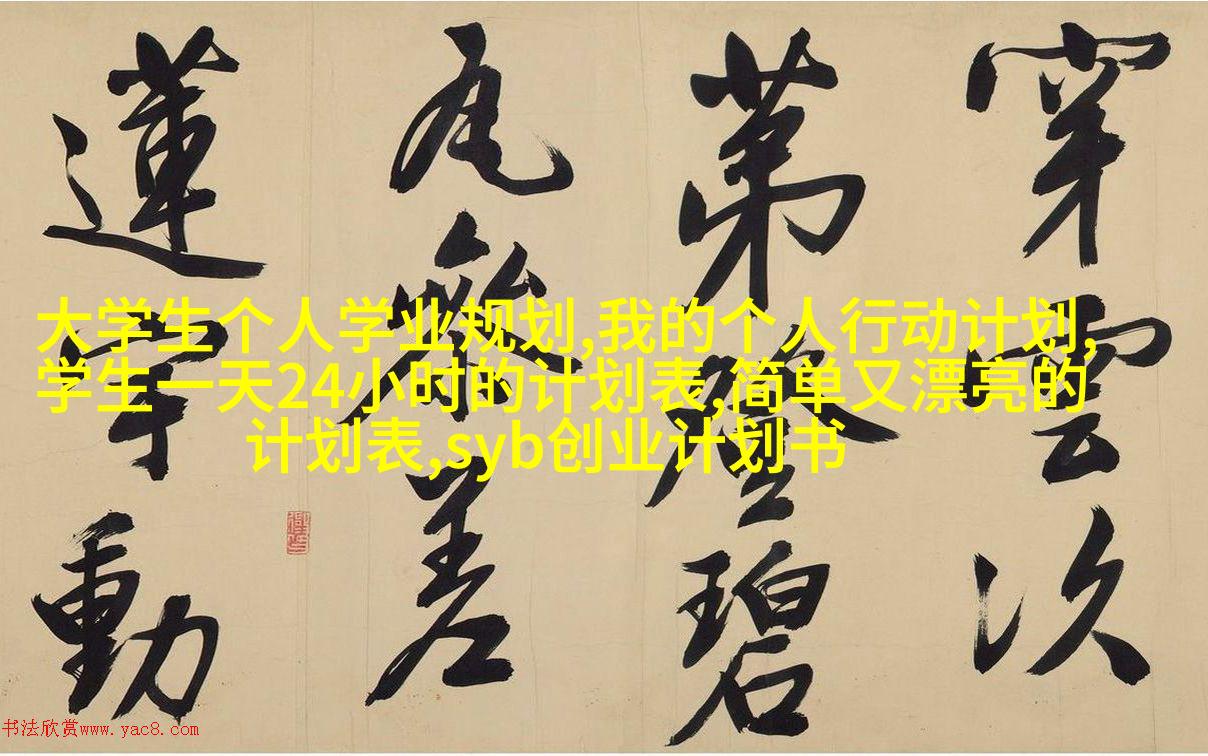 穿雲次
第登碧
瓦參差
蓮宇動
大学生个人学业规划,我的个人行动计划,
学生一天24小时的计划表,简单又漂亮的
计划表,syb创业计划书
书法欣赏www.yac8.com